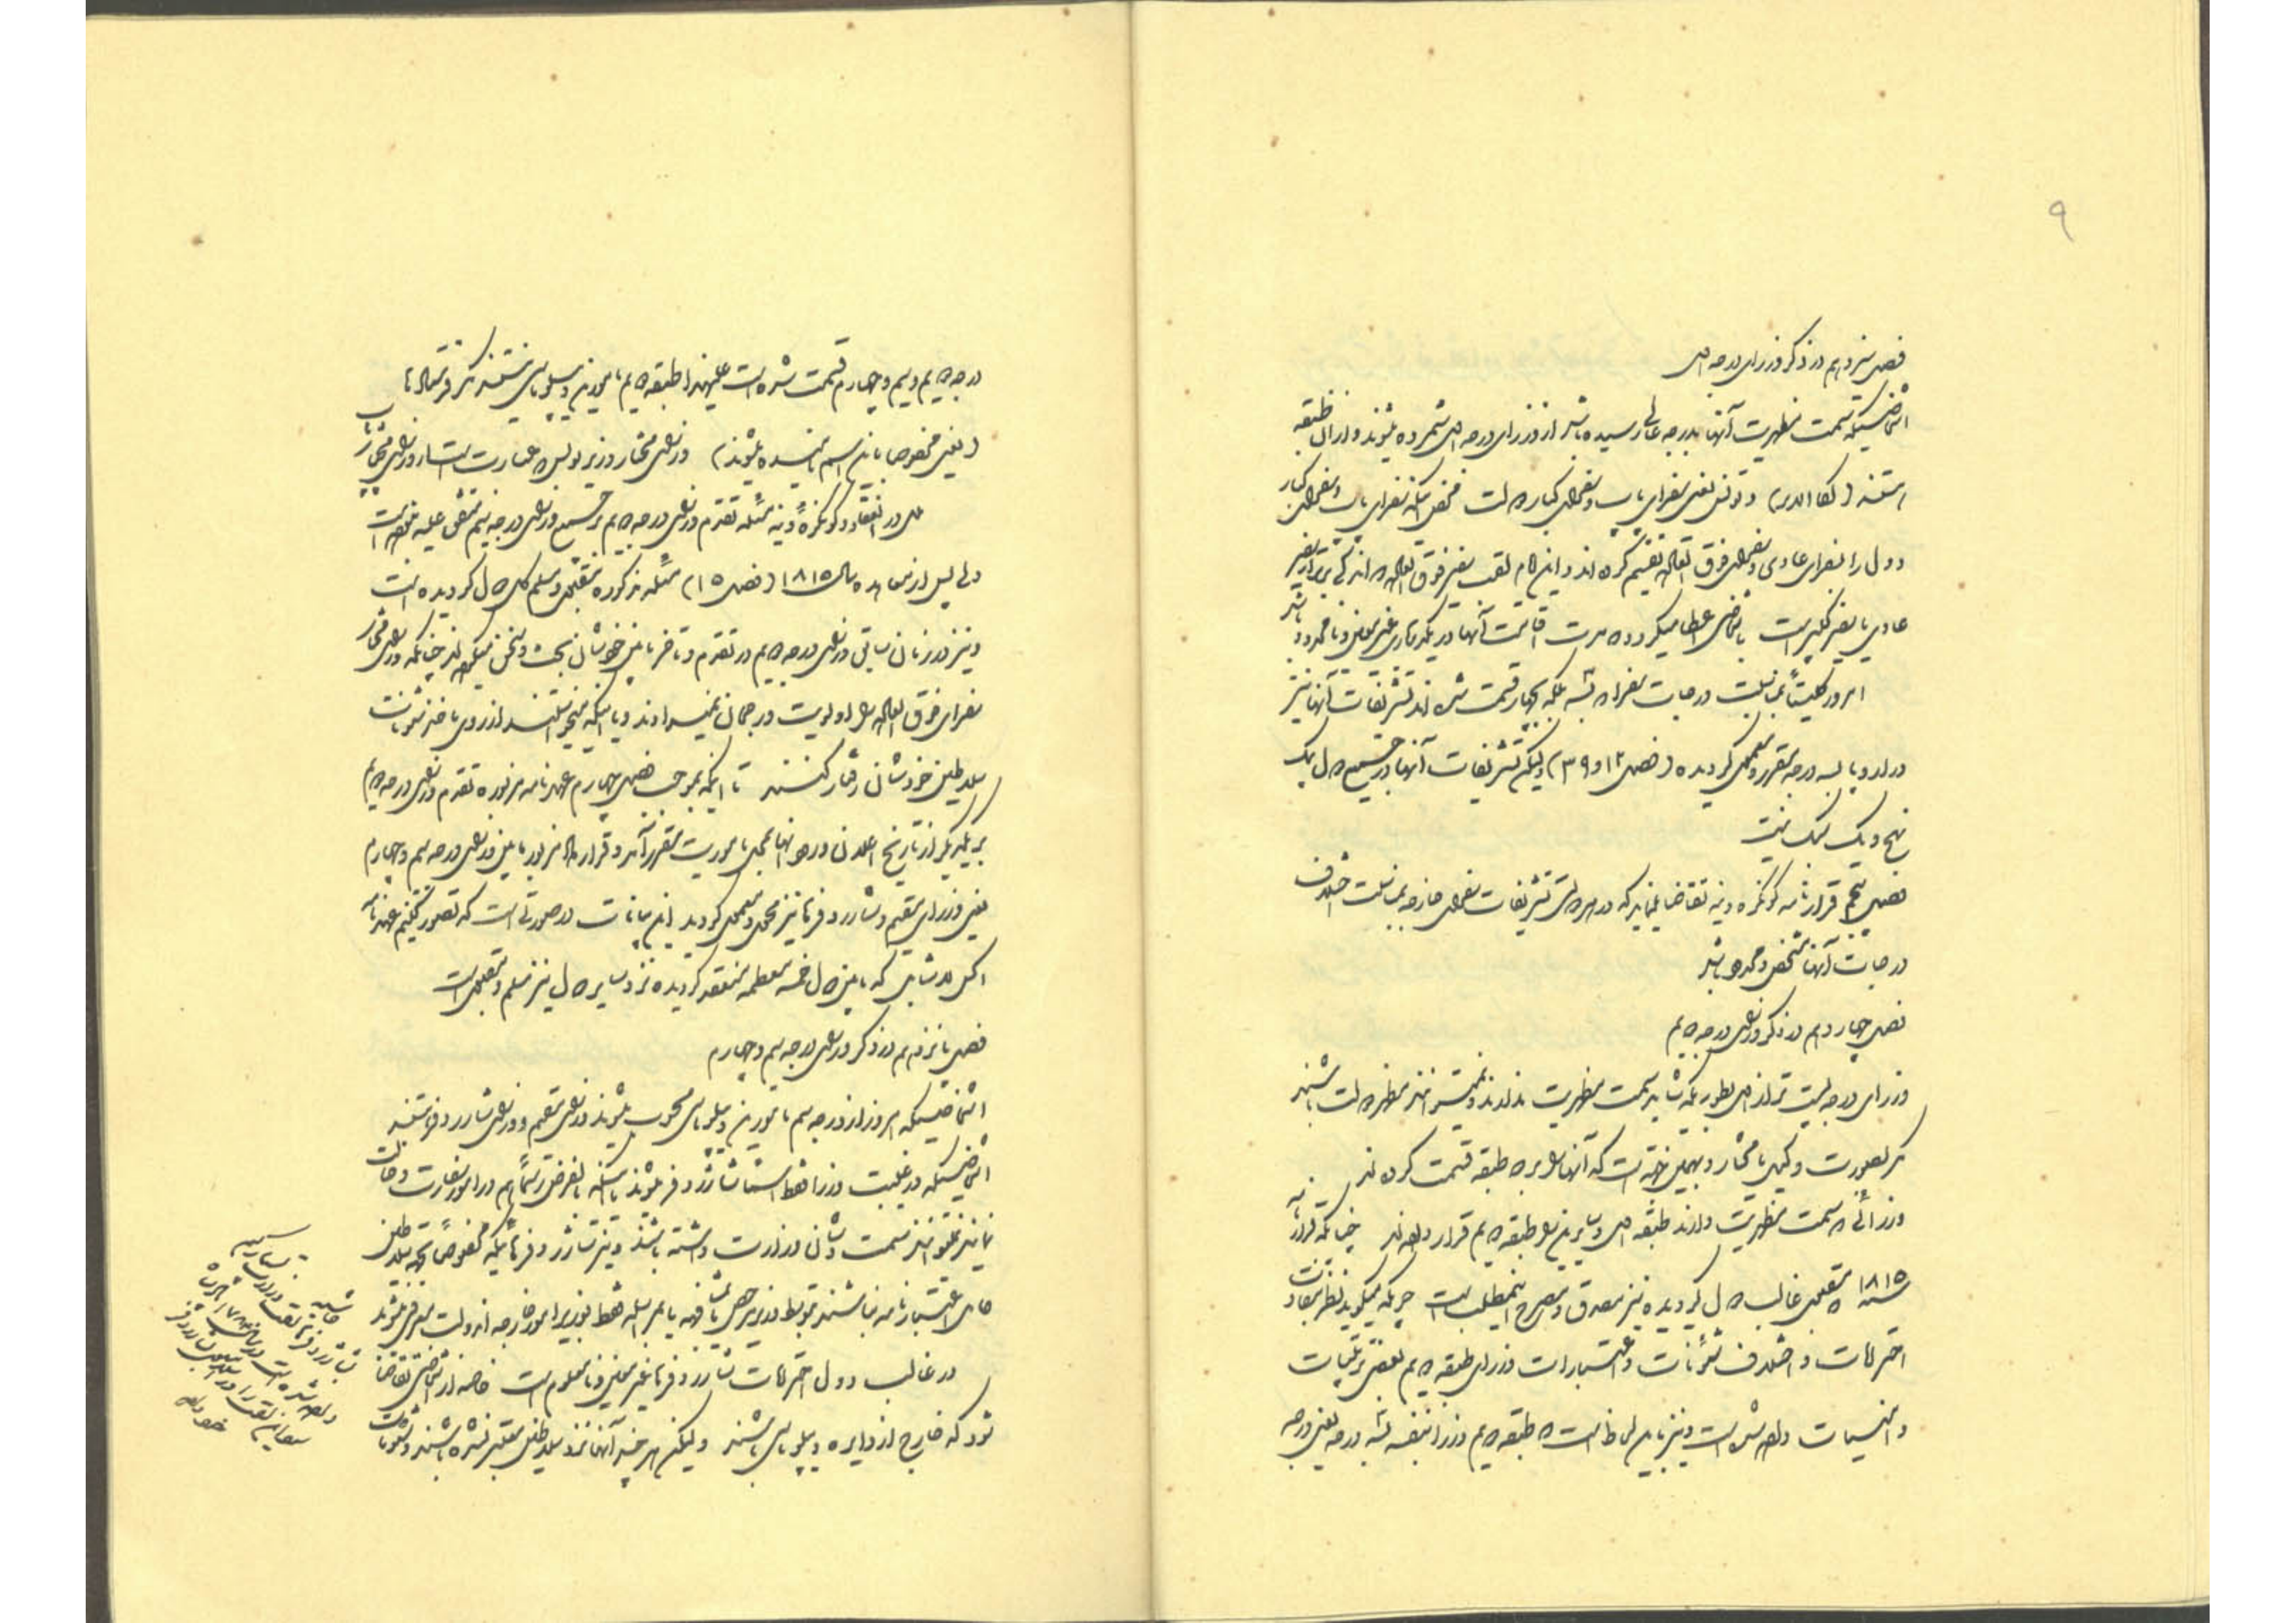 ۹
فصل سیزدهم در ذکر وزرای درجه اول
اشخاصیکه سمت مظهریت آنها بدرجه عالی رسیده باشد از وزرای درجه اول شمرده میشوند و از آن طبقه
هستند (لگا الدری) و نونس یعنی سفرای پاپ و سفرای کبار دولت سفرای پاپ و سفرای کبار
دول را بسفرای عادی و سفرای فوق العاده تقسیم کرده اند و این نام لقب سفیر فوق العاده اندکی برتر از سفیر
عادی یا سفیر کبیر است باشخاصی عطا میگردد که مدت اقامت آنها در یکدربار غیر معین و نامحدود باشد
امروز کلیتاً بمناسبت درجات سفرا که به چهار قسمت شده اند تشریفات آنها نیز
در اروپا بسه درجه مقرر و معمول گردیده (فصل ۱۲ و ۳۹) ولیکن تشریفات آنها در جمیع دول بیک
نهج و یک نسک نیست
فصل پنجم قرارنامه کونگره وینه تقاضا مینماید که در هر دولتی تشریفات سفرای خارجه بمناسبت اختلاف
درجات آنها مشخص و محدود باشد
فصل چهاردهم در ذکر وزرای درجه دویم
وزرای درجه پست تر از اول بطوریکه شاید سمت مظهریت ندارند و نمیتوانند مظهر دولت باشند
مگر بصورت وکیل یا مختار و بهمین جهت است که آنها را بر دو طبقه قسمت کرده اند
وزرائی که سمت مظهریت دارند طبقه اول و سایرین را طبقه دویم قرار داده اند چنانکه قرارنامه
سنه ۱۸۱۵ که معمول غالب دول گردیده نیز مصدق و مصرح اینمطلب است چرا که میگوید نظر بتفاوت
احترامات و اختلاف شئونات و اعتبارات وزرای طبقه دویم بعضی ترتیبات
و انقسامات داده شده است و نیز باین لحاظ است که طبقه دویم وزرا بنفسه بسه درجه یعنی درجه
درجه دویم و سیم و چهارم قسمت شده است علیهذا طبقه دویم مأمورین دیپلوماسی هستند
(یعنی مخصوصا باین اسم نامیده میشوند) وزرای مختار وزیر پولیس عبارت است از وزرای مختار پاپ
ولی در انعقاد کونگره وینه مسئله تقدم وزرای درجه دویم بر جمیع وزرای درجه سیم متفق علیه نبوده است
ولی پس از معاهده سال ۱۸۱۵ (فصل ۱۵) مسئله مذکوره مقبول و مسلم کل دول گردیده است
و نیز در زمان سابق وزرای درجه دویم در تقدم و تأخر مابین خودشان بحث و سخن میکرده اند چنانکه وزرای مختار
سفرای فوق العاده را اولویت و رجحان نمیدادند و با اینکه میخواستند از روی تأخر شئونات
سلاطین خودشان رفتار کنند تا اینکه بموجب فصل چهارم عهدنامه مزبوره تقدم وزرای درجه دویم
بر یکدیگر از تاریخ اعلان ورود آنها بمحل مأموریت مقرر آمد و قرارداد مزبور مابین وزرای درجه سیم و چهارم
یعنی وزرای مقیم و شارژ دفر نیز مجری و معمول گردید این بیانات در صورتی است که تصور کنیم عهدنامه
اکس لا شاپل که مابین دول خمسه معظمه منعقد گردیده نزد سایر دول نیز مسلم و معمول است
فصل پانزدهم در ذکر وزرای درجه سیم و چهارم
اشخاصیکه امروز از درجه سیم مأمورین دیپلوماسی محسوب میشوند وزرای مقیم و وزرای شارژ دفر هستند
اشخاصیکه در غیبت وزرا فقط اسما شارژ دفر میشوند یا اینکه بالفرض رسماً هم در امور سفارت دخالت
نمایند نمیتوانند سمت و شأن وزارت داشته باشند و نیز شارژ دفرهائیکه مخصوصاً بجهة سلاطین
حامل اعتبارنامه نباشند بتوسط وزیر مرخص شفاهه یا بمراسله فقط بوزیر امور خارجه آن دولت معرفی میشوند
در غالب دول احترامات شارژ دفر غیر معین و نامعلوم است خاصه از اشخاصی تقاضا
شود که خارج از دایره دیپلوماسی باشند ولیکن هرچند آنها نزد سلاطین معتبر نشده باشند و شئونات
حاشیه
شارژ دفر
داده شده است در سال ۱۷۸۴
خود داده